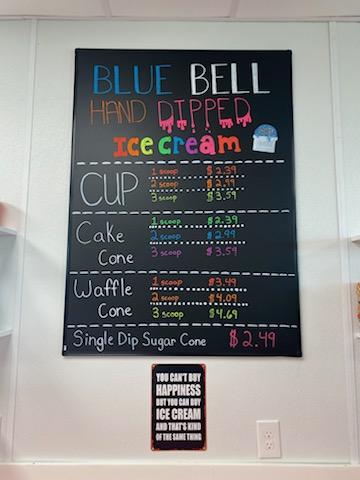 BLUE BELL
HAND DIPPED
Ice cream
CUP
1 scoop $2.39
2 scoop $2.99
3 scoop $3.59
Cake Cone
1 scoop $2.39
2 scoop $2.99
3 scoop $3.59
Waffle Cone
1 scoop $3.49
2 scoop $4.09
3 scoop $4.69
Single Dip Sugar Cone $2.49
YOU CAN'T BUY
HAPPINESS
BUT YOU CAN BUY
ICE CREAM
AND THAT'S KIND
OF THE SAME THING